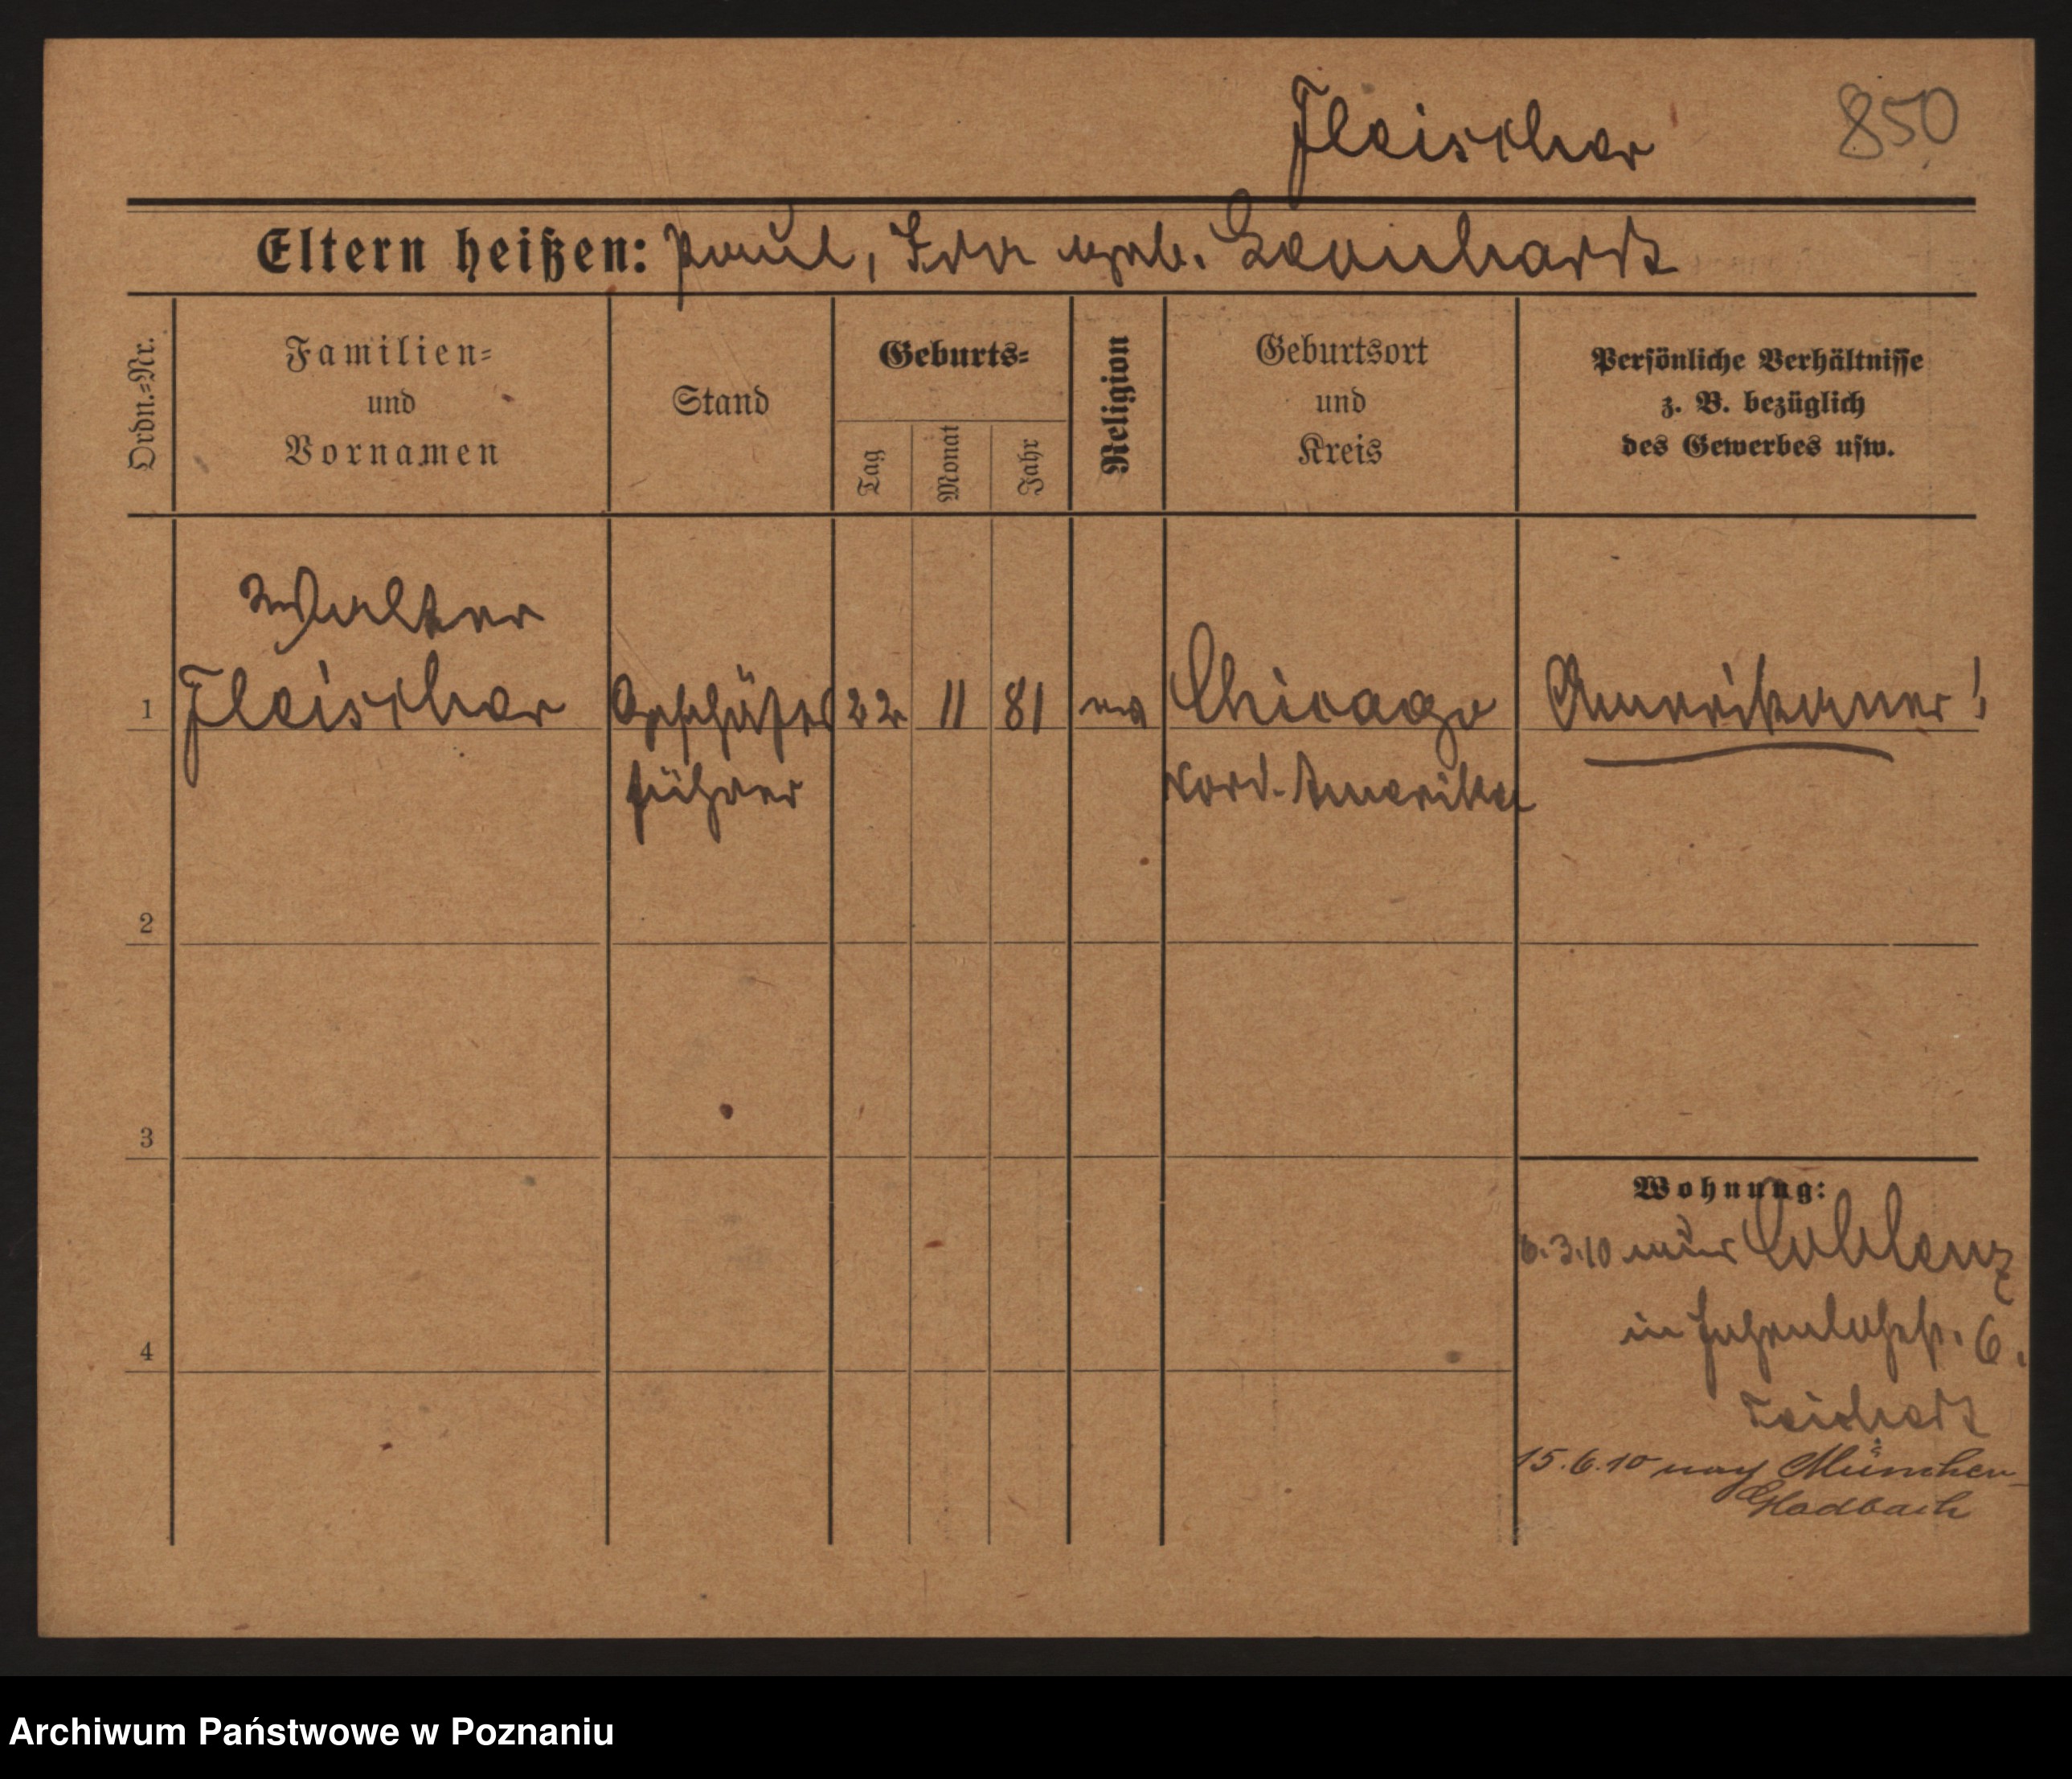 Fleischer 850
Eltern heißen: Paul, Ida geb. Leonhardt
Ordn.=Nr.
Familien=
und
Vornamen
Stand
Geburts=
Tag
Monat
Jahr
Religion
Geburtsort
und
Kreis
Persönliche Verhältnisse
z. B. bezüglich
des Gewerbes usw.
Walter
1 Fleischer Geschäfts 22 11 81 ev Chicago Amerikaner!
führer Nord-Amerika
2
3
Wohnung:
6.3.10 aus Coblenz
in 6.
4
15.6.10 nach München-
Gladbach
Archiwum Państwowe w Poznaniu